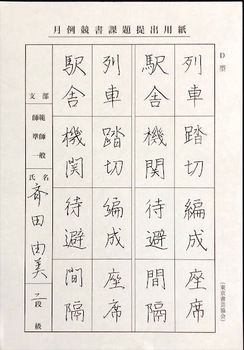 月例競書課題提出用紙
D型
列車踏切編成座席
駅舎機関待避間隔
列車踏切編成座席
駅舎機関待避間隔
支部
師範
準師
一般
氏名
斉田由美
段級
(東京書芸協会)